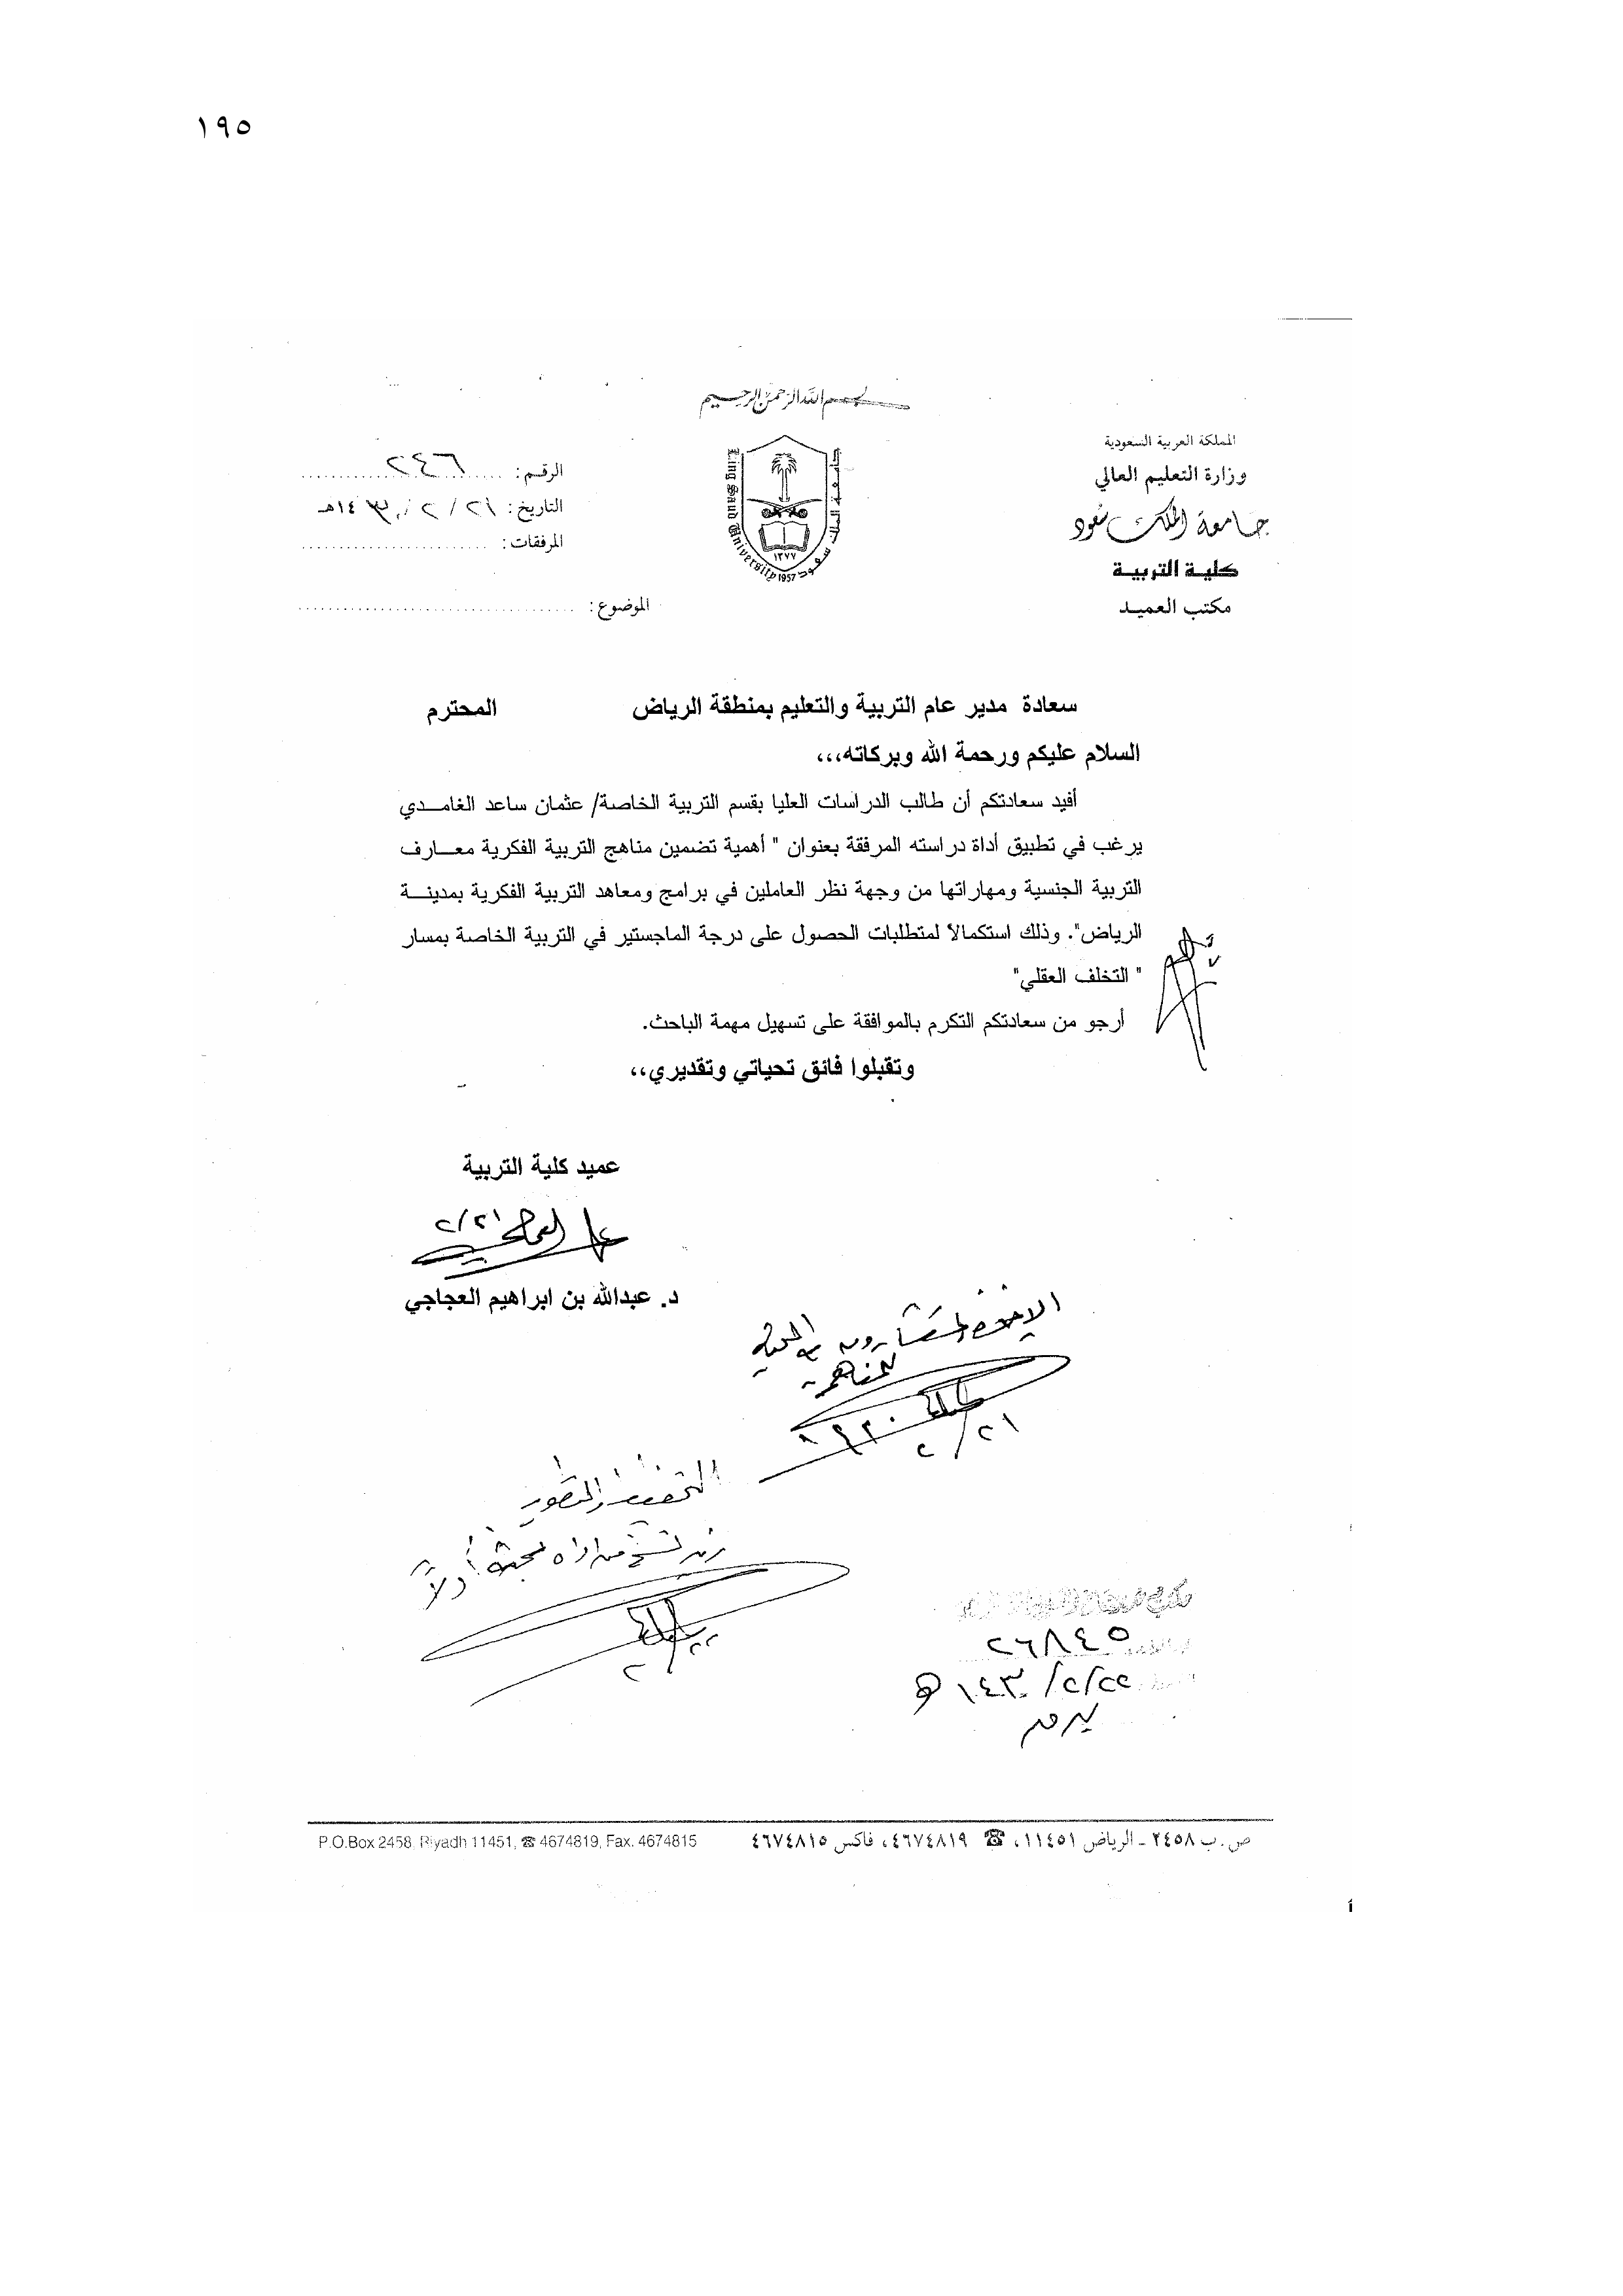 ١٩٥
بسم الله الرحمن الرحيم
المملكة العربية السعودية
وزارة التعليم العالي
جامعة الملك سعود
كلية التربية
مكتب العميد
جامعة الملك سعود
King Saud University
١٣٧٧
1957
الرقم: ٢٤٦
التاريخ: ٢١/٢/١٤٣٠هـ
المرفقات:
الموضوع:
سعادة مدير عام التربية والتعليم بمنطقة الرياض المحترم
السلام عليكم ورحمة الله وبركاته،،،
أفيد سعادتكم أن طالب الدراسات العليا بقسم التربية الخاصة/ عثمان ساعد الغامدي
يرغب في تطبيق أداة دراسته المرفقة بعنوان " أهمية تضمين مناهج التربية الفكرية معارف
التربية الجنسية ومهاراتها من وجهة نظر العاملين في برامج ومعاهد التربية الفكرية بمدينة
الرياض". وذلك استكمالاً لمتطلبات الحصول على درجة الماجستير في التربية الخاصة بمسار
" التخلف العقلي"
أرجو من سعادتكم التكرم بالموافقة على تسهيل مهمة الباحث.
وتقبلوا فائق تحياتي وتقديري،،
عميد كلية التربية
٢/٢١
د. عبدالله بن ابراهيم العجاجي
٢/٢١
التخطيط والتطوير
أولاً
٢٦٨٤٥
٢٢/٢/١٤٣٠هـ
ص.ب ٢٤٥٨ ـ الرياض ١١٤٥١، ☎ ٤٦٧٤٨١٩، فاكس ٤٦٧٤٨١٥
P.O.Box 2458, Riyadh 11451, ☎ 4674819, Fax. 4674815
أ